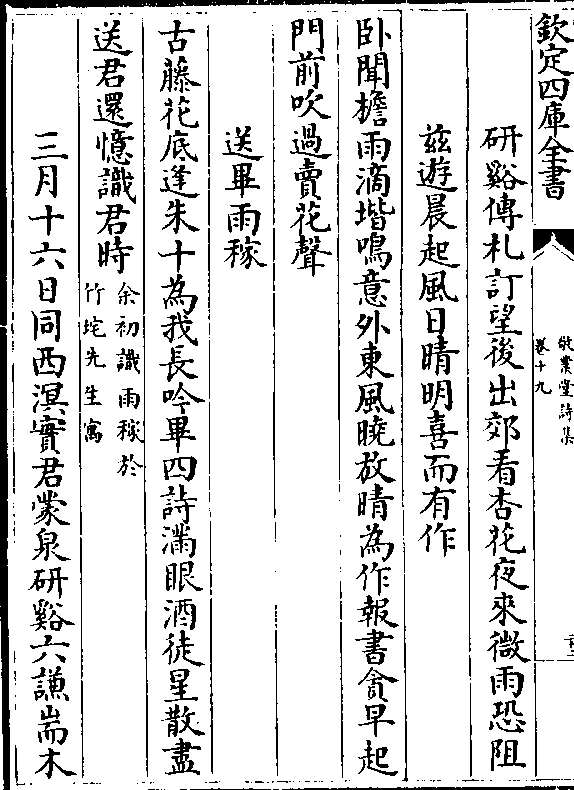 欽定四庫全書
敬業堂詩集
卷十九
研谿傳札訂望後出郊看杏花夜來微雨恐阻
兹遊晨起風日晴明喜而有作
卧聞檐雨滴堦鳴意外東風曉放晴為作報書貪早起
門前吹過賣花聲
送畢雨稼
古藤花底逢朱十為我長吟畢四詩滿眼酒徒星散盡
送君還憶識君時余初識雨稼於
竹垞先生寓
三月十六日同西溟實君蒙泉研谿六謙耑木